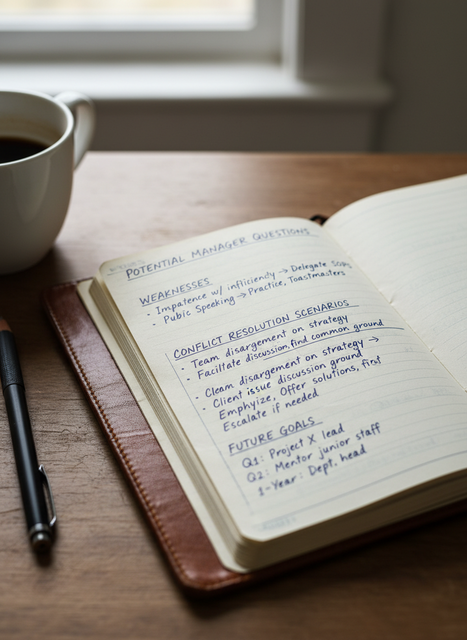 POTENTIAL MANAGER QUESTIONS
WEAKNESSES
• Impatence w/ infliciency → Delegate
• Pubic Speaking → Practice, Toastmasters
CONFLICT RESOLUTION SCENARIOS
• Team disargement on strategy
• Faciltate discussion, find common ground
Cleam disargement on strategy →
• Client issue discussion ground
Emphyize, Offer solutions, first
Escalate if needed
FUTURE GOALS
Q1: Project X lead
Q2: Mentor junior staff
1-Year: Dept. head